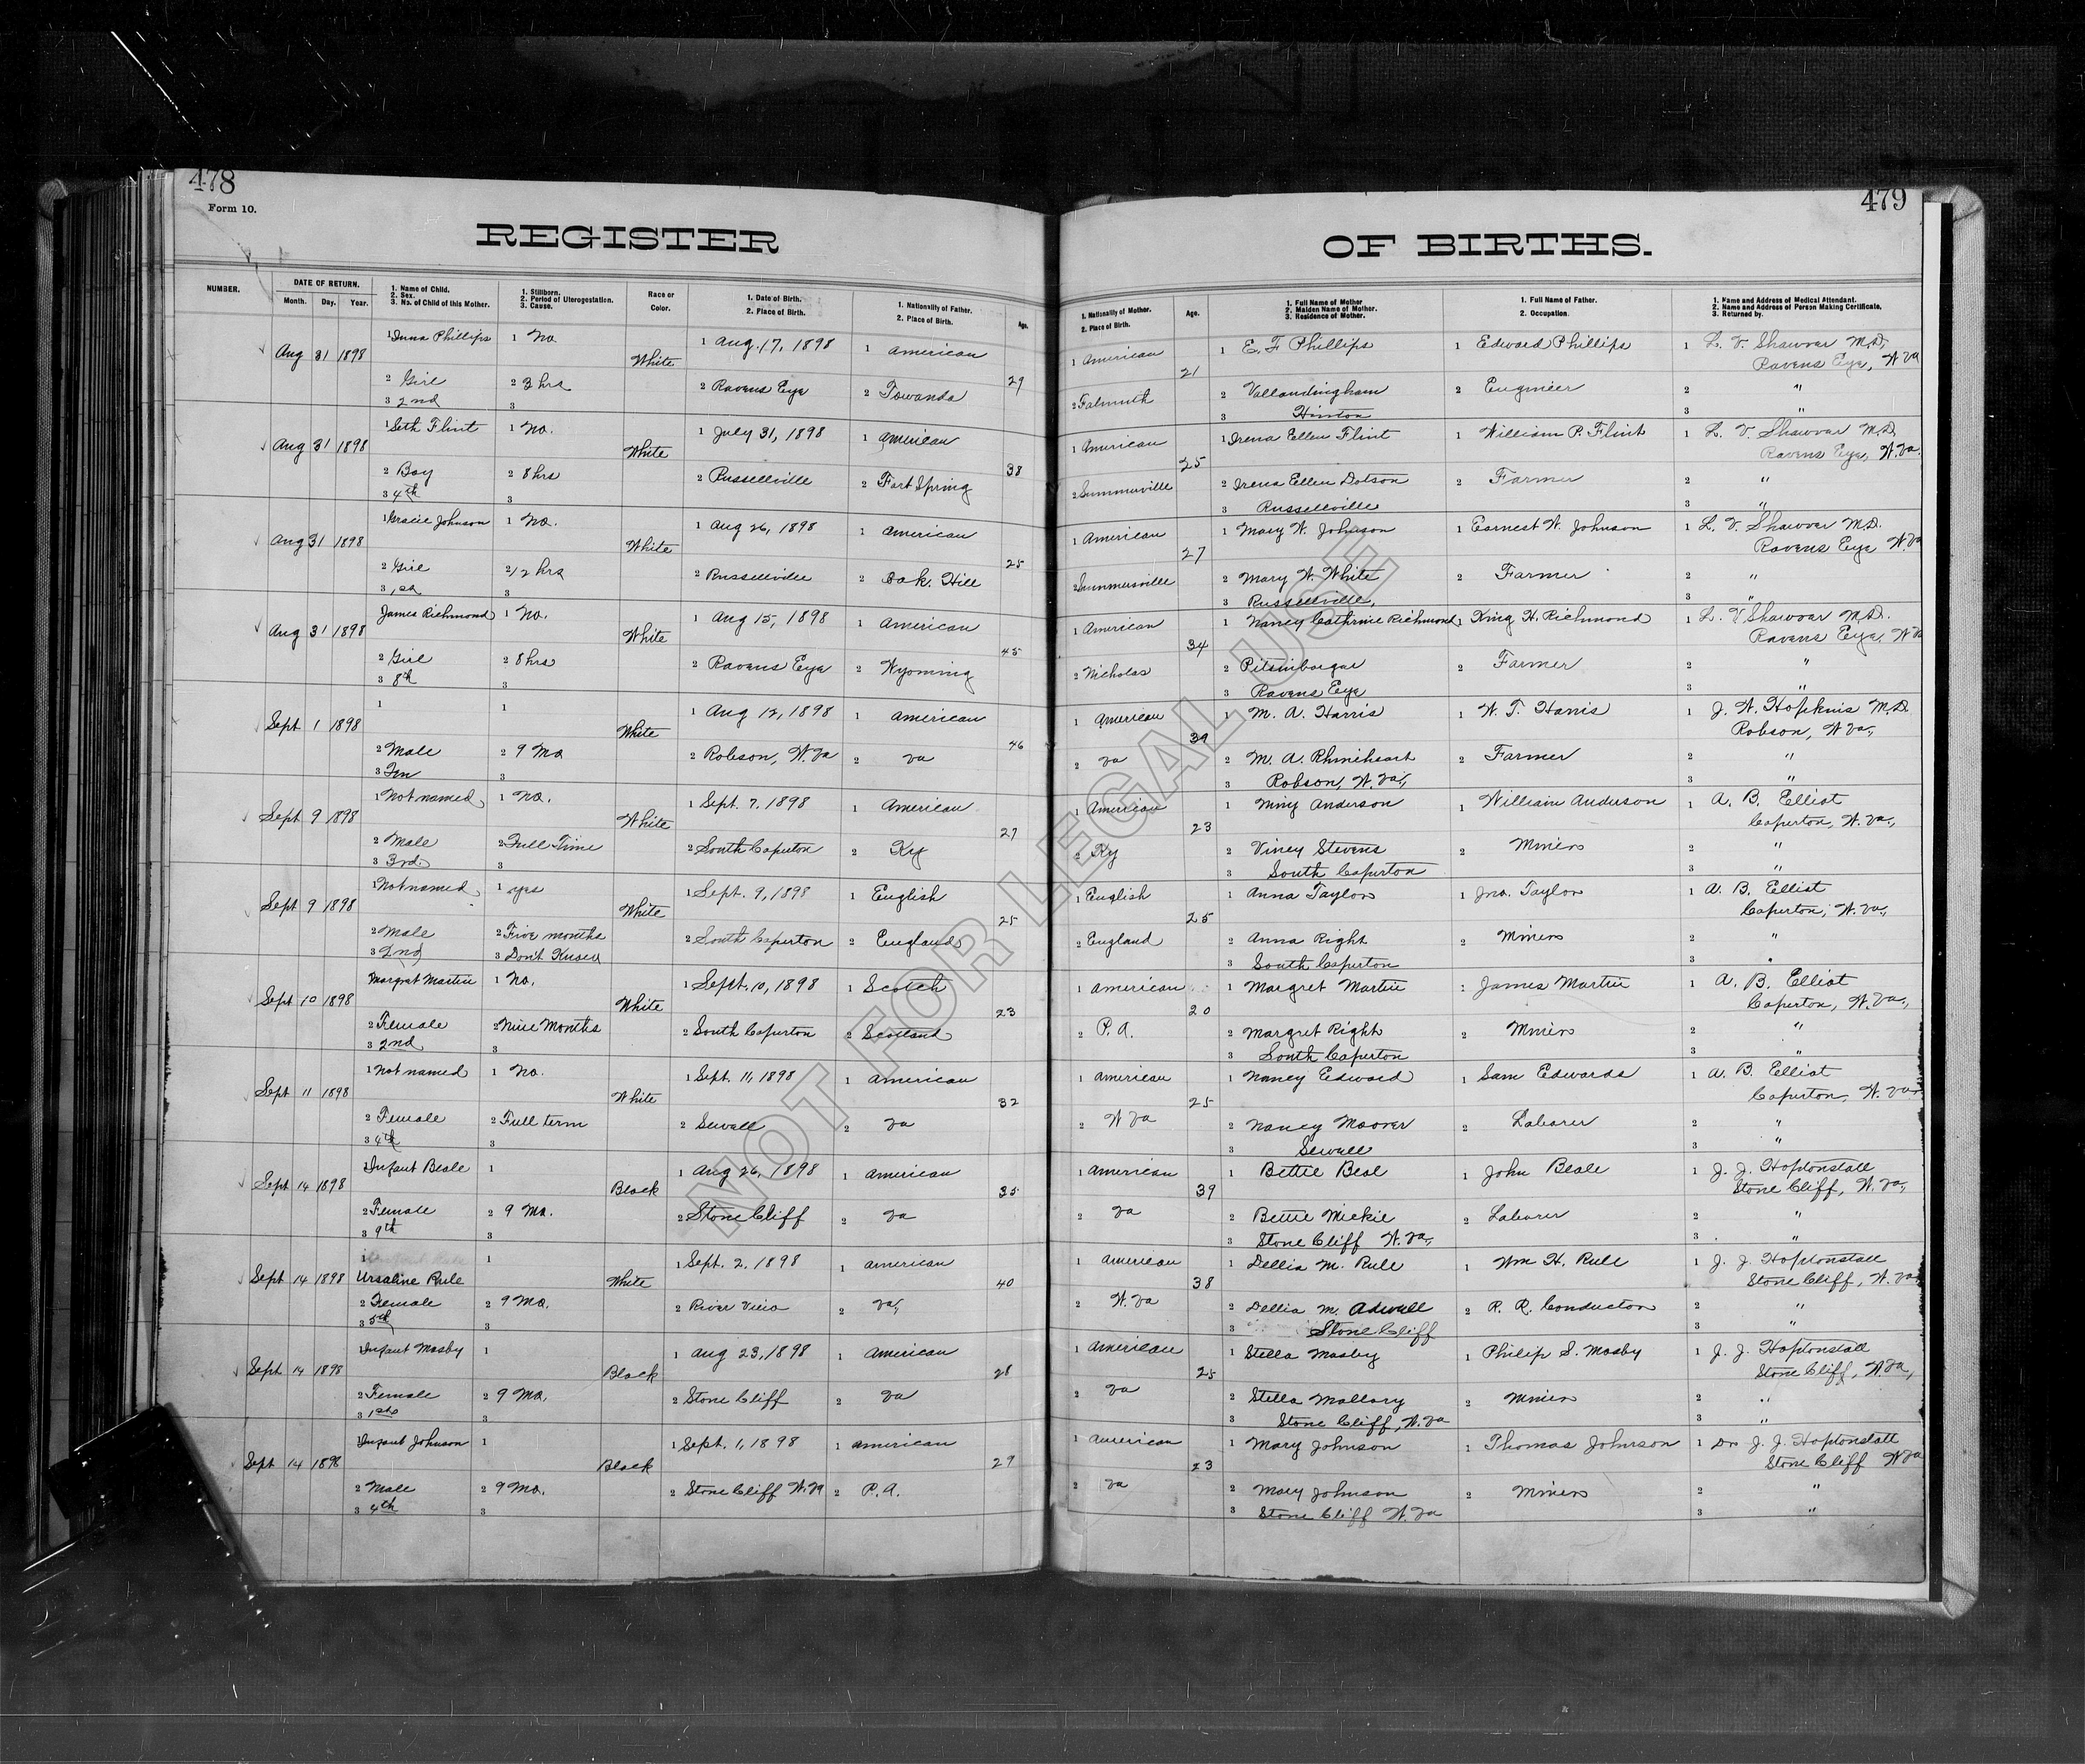 478
Form 10.
REGISTER
NUMBER.
DATE OF RETURN.
Month. Day. Year.
1. Name of Child.
2. Sex.
3. No. of Child of this Mother.
1. Stillborn.
2. Period of Uterogestation.
3. Cause.
Race or
Color.
1. Date of Birth.
2. Place of Birth.
1. Nationality of Father.
2. Place of Birth.
Age.
1 Phillips 1 No. 1 Aug. 17, 1898 1 American
Aug 31 1898 White 29
2 Girl 2 3 hrs 2 Ravens Eye 2 Towanda
3 2nd 3
1 Seth Flint 1 No. 1 July 31, 1898 1 American
Aug 31 1898 White 38
2 Boy 2 8 hrs 2 Russellville 2 Fort Spring
3 4th 3
1 Gracie Johnson 1 No. 1 Aug 26, 1898 1 American
Aug 31 1898 White 25
2 Girl 2 12 hrs 2 Russellville 2 Oak Hill
3 1st 3
James Richmond 1 No. 1 Aug 15, 1898 1 American
Aug 31 1898 White 45
2 Girl 2 8 hrs 2 Ravens Eye 2 Wyoming
3 8th 3
1 1 1 Aug 12, 1898 1 American
Sept 1 1898 White 46
2 Male 2 9 Mo 2 Robson, W. Va 2 Va
3 Ten 3
1 Not named 1 No. 1 Sept. 7, 1898 1 American
Sept 9 1898 White 27
2 Male 2 Full Time 2 South Caperton 2 Ky
3 3rd. 3
1 Not named 1 yes 1 Sept. 9, 1898 1 English
Sept 9 1898 White 25
2 Male 2 Five months 2 South Caperton 2 England
3 2nd 3 Don't Know
Margret Martin 1 No. 1 Sept. 10, 1898 1 Scotch
Sept 10 1898 White 23
2 Female 2 Nine Months 2 South Caperton 2 Scotland
3 2nd 3
1 Not named 1 No. 1 Sept. 11, 1898 1 American
Sept 11 1898 White 32
2 Female 2 Full term 2 Sewall 2 Va
3 4th 3
Infant Beale 1 1 Aug 26, 1898 1 American
Sept 14 1898 Black 35
2 Female 2 9 Mo. 2 Stone Cliff 2 Va
3 9th 3
1 1 1 Sept. 2, 1898 1 American
Sept 14 1898 Ursaline Rule White 40
2 Female 2 9 Mo. 2 River View 2 Va,
3 5th 3
Infant Mosby 1 1 Aug 23, 1898 1 American
Sept 14 1898 Black 28
2 Female 2 9 Mo. 2 Stone Cliff 2 Va
3 1st 3
Infant Johnson 1 1 Sept. 1, 1898 1 American
Sept 14 1898 Black 29
2 Male 2 9 Mo. 2 Stone Cliff W. Va 2 P. A.
3 4th 3
479
OF BIRTHS.
1. Nationality of Mother.
2. Place of Birth.
Age.
1. Full Name of Mother
2. Maiden Name of Mother.
3. Residence of Mother.
1. Full Name of Father.
2. Occupation.
1. Name and Address of Medical Attendant.
2. Name and Address of Person Making Certificate.
3. Returned by.
1 American 21 1 E. F Phillips 1 Edward Phillips 1 L. V. Shawver M.D,
Ravens Eye, W Va
2 Falmuth 2 Vallandingham 2 Engineer 2 "
3 Hinton 3 "
1 American 25 1 Irena Ellen Flint 1 William P. Flint 1 L. V. Shawver M.D.
Ravens Eye, W. Va.
2 Summerville 2 Irena Ellen Dotson 2 Farmer 2 "
3 Russellville 3 "
1 American 27 1 Mary W. Johnson 1 Earnest W. Johnson 1 L. V. Shawver M.D.
Ravens Eye W. Va
2 Summersville 2 Mary W. White 2 Farmer 2 "
3 Russellville, 3 "
1 American 34 1 Nancy Cathrine Richmond 1 King H. Richmond 1 L. V Shawver M.D.
Ravens Eye, W Va
2 Nicholas 2 Pitsinbargar 2 Farmer 2 "
3 Ravens Eye 3 "
1 American 39 1 M. A. Harris 1 W. T. Harris 1 J. W. Hopkins M.D.
Robson, W Va.,
2 Va 2 M. A. Rhineheart 2 Farmer 2 "
3 Robson, W. Va., 3 "
1 American 23 1 Viny Anderson 1 William Anderson 1 A. B. Elliot
Caperton, W. Va.,
2 Ky 2 Viney Stevens 2 Miner 2 "
3 South Caperton 3 "
1 English 25 1 Anna Taylor 1 Jno. Taylor 1 A. B. Elliot
Caperton, W. Va.,
2 England 2 Anna Right 2 Miner 2 "
3 South Caperton 3 "
1 American 20 1 Margret Martin 1 James Martin 1 A. B. Elliot
Caperton, W. Va.,
2 P. A. 2 Margret Right 2 Miner 2 "
3 South Caperton 3 "
1 American 25 1 Nancy Edward 1 Sam Edwards 1 A. B. Elliot
Caperton, W. Va
2 W Va 2 Nancy Moover 2 Laborer 2 "
3 Sewall 3 "
1 American 39 1 Bettie Beal 1 John Beale 1 J. J. Hoptonstall
Stone Cliff, W. Va.,
2 Va 2 Bettie Mickie 2 Laborer 2 "
3 Stone Cliff W. Va., 3 "
1 American 38 1 Dellia M. Rule 1 Wm H. Rule 1 J. J. Hoptonstall
Stone Cliff, W. Va
2 W. Va 2 Dellia M. Adwell 2 R. R. Conductor 2 "
3 Stone Cliff 3 "
1 American 25 1 Stella Mosby 1 Philip S. Mosby 1 J. J. Hoptonstall
Stone Cliff, W. Va,
2 Va 2 Stella Mallory 2 Miner 2 "
3 Stone Cliff, W. Va 3 "
1 American 23 1 Mary Johnson 1 Thomas Johnson 1 Dr J. J. Hoptonstall
Stone Cliff W Va
2 Va 2 Mary Johnson 2 Miner 2 "
3 Stone Cliff W. Va 3 "
NOT FOR LEGAL USE